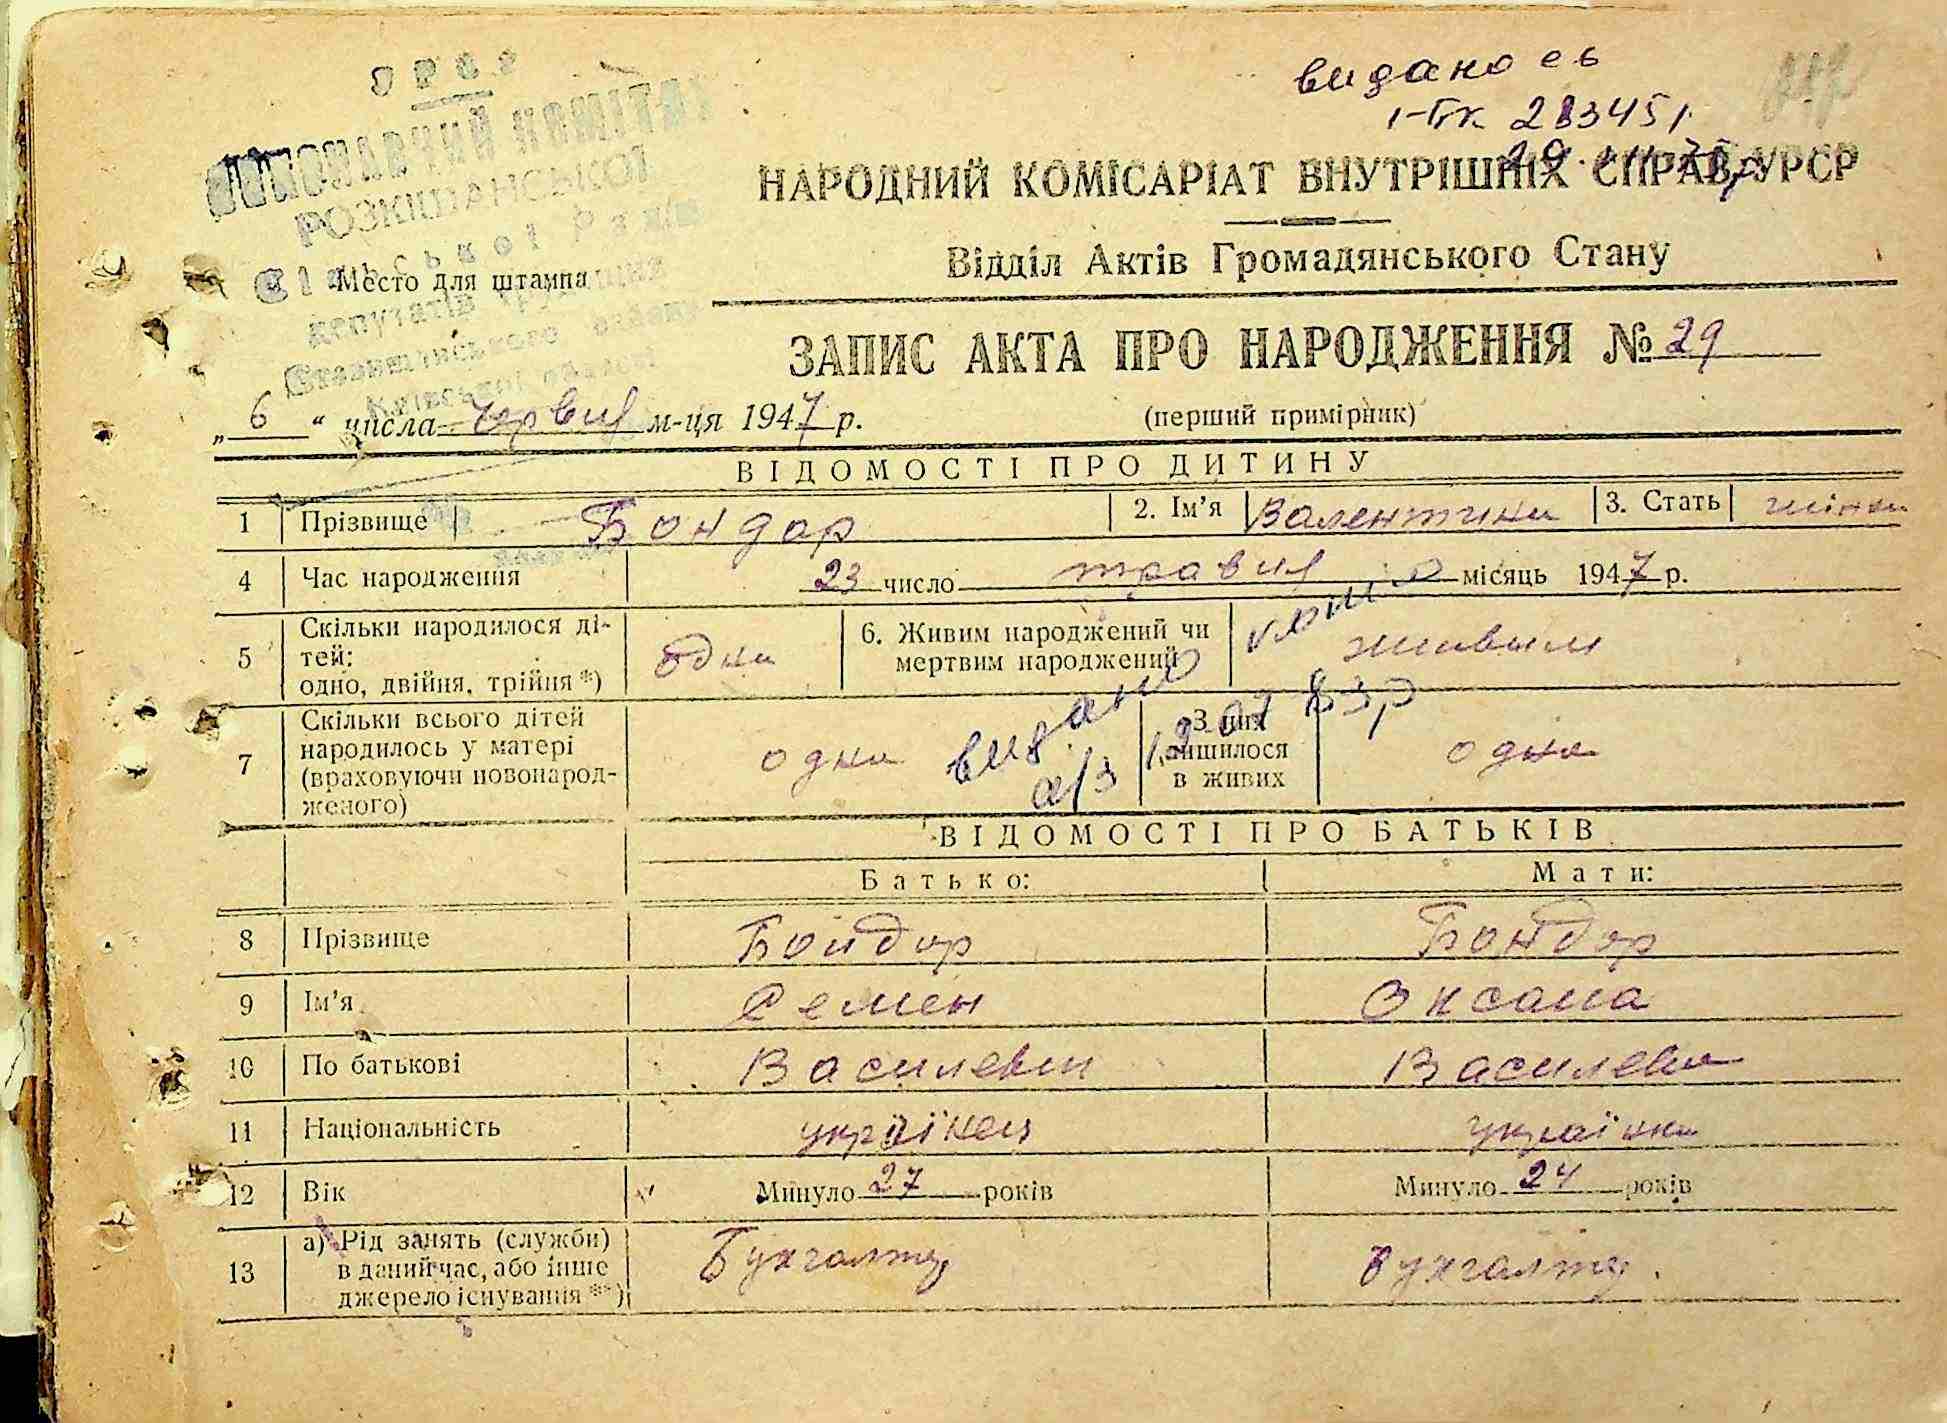 УРСР
ВИКОНАВЧИЙ КОМІТЕТ
РОЗКІШАНСЬКОЇ
Сільської Ради
депутатів трудящих
Ставищанського району
Київської області
видано св
І-БК 283451
НАРОДНИЙ КОМІСАРІАТ ВНУТРІШНІХ СПРАВ УРСР
Відділ Актів Громадянського Стану
Место для штампа
ЗАПИС АКТА ПРО НАРОДЖЕННЯ № 29
„ 6 “ числа червня м-ця 1947 р.
(перший примірник)
ВІДОМОСТІ ПРО ДИТИНУ
1 Прізвище Бондар 2. Ім'я Валентина 3. Стать жіноч
4 Час народження 23 число травня місяць 1947 р.
5 Скільки народилося ді-
тей:
одно, двійня, трійня *) одна 6. Живим народжений чи
мертвим народжений живым
7 Скільки всього дітей
народилось у матері
(враховуючи новонарод-
женого) одна З них
лишилося
в живих одна
видано
а/з
ВІДОМОСТІ ПРО БАТЬКІВ
Батько: Мати:
8 Прізвище Бондар Бондар
9 Ім'я Семен Оксана
10 По батькові Василевич Василевна
11 Національність українец українка
12 Вік Минуло 27 років Минуло 24 років
13 а) Рід занять (служби)
в даний час, або інше
джерело існування **) Бухгалтер Бухгалтер.